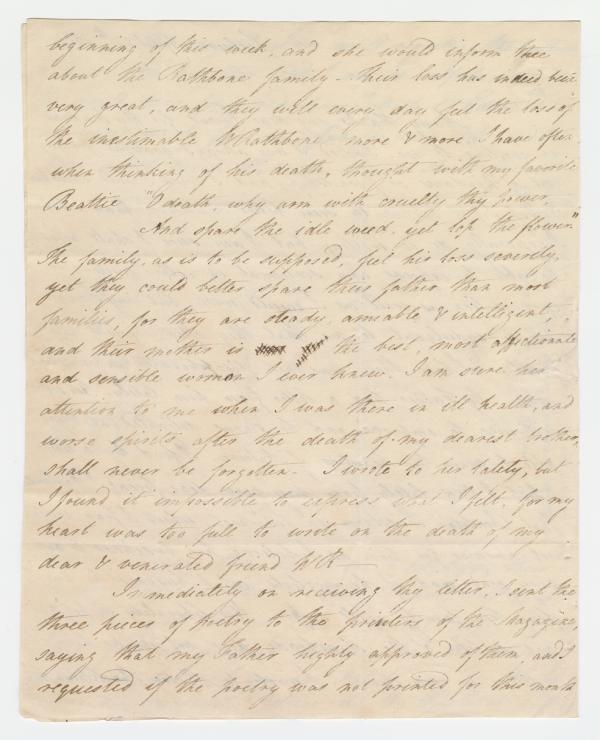 beginning of this week, and she would inform thee
about the Rathbone family – their loss has indeed been
very great, and they will every day feel the loss of
the inestimable W Rathbone more & more I have often
when thinking of his death, thought with my favorite
Beattie "O death, why arm with cruelty thy power,
And spare the idle weed, yet lop the flower"
The family, as is to be supposed, feel his loss severely,
yet they could better spare their father than most
families, for they are steady, amiable & intelligent,
and their mother is the best, most affectionate
and sensible woman I ever knew. I am sure her
attention to me when I was there in ill health, and
worse spirits after the death of my dearest brother,
shall never be forgotten – I wrote to her lately, but
I found it impossible to express what I felt, for my
heart was too full to write on the death of my
dear & venerated friend WR –
Immediately on receiving thy letter, I sent the
three pieces of poetry to the printers of the Magazine,
saying that my Father highly approved of them, and I
requested if the poetry was not printed for this month